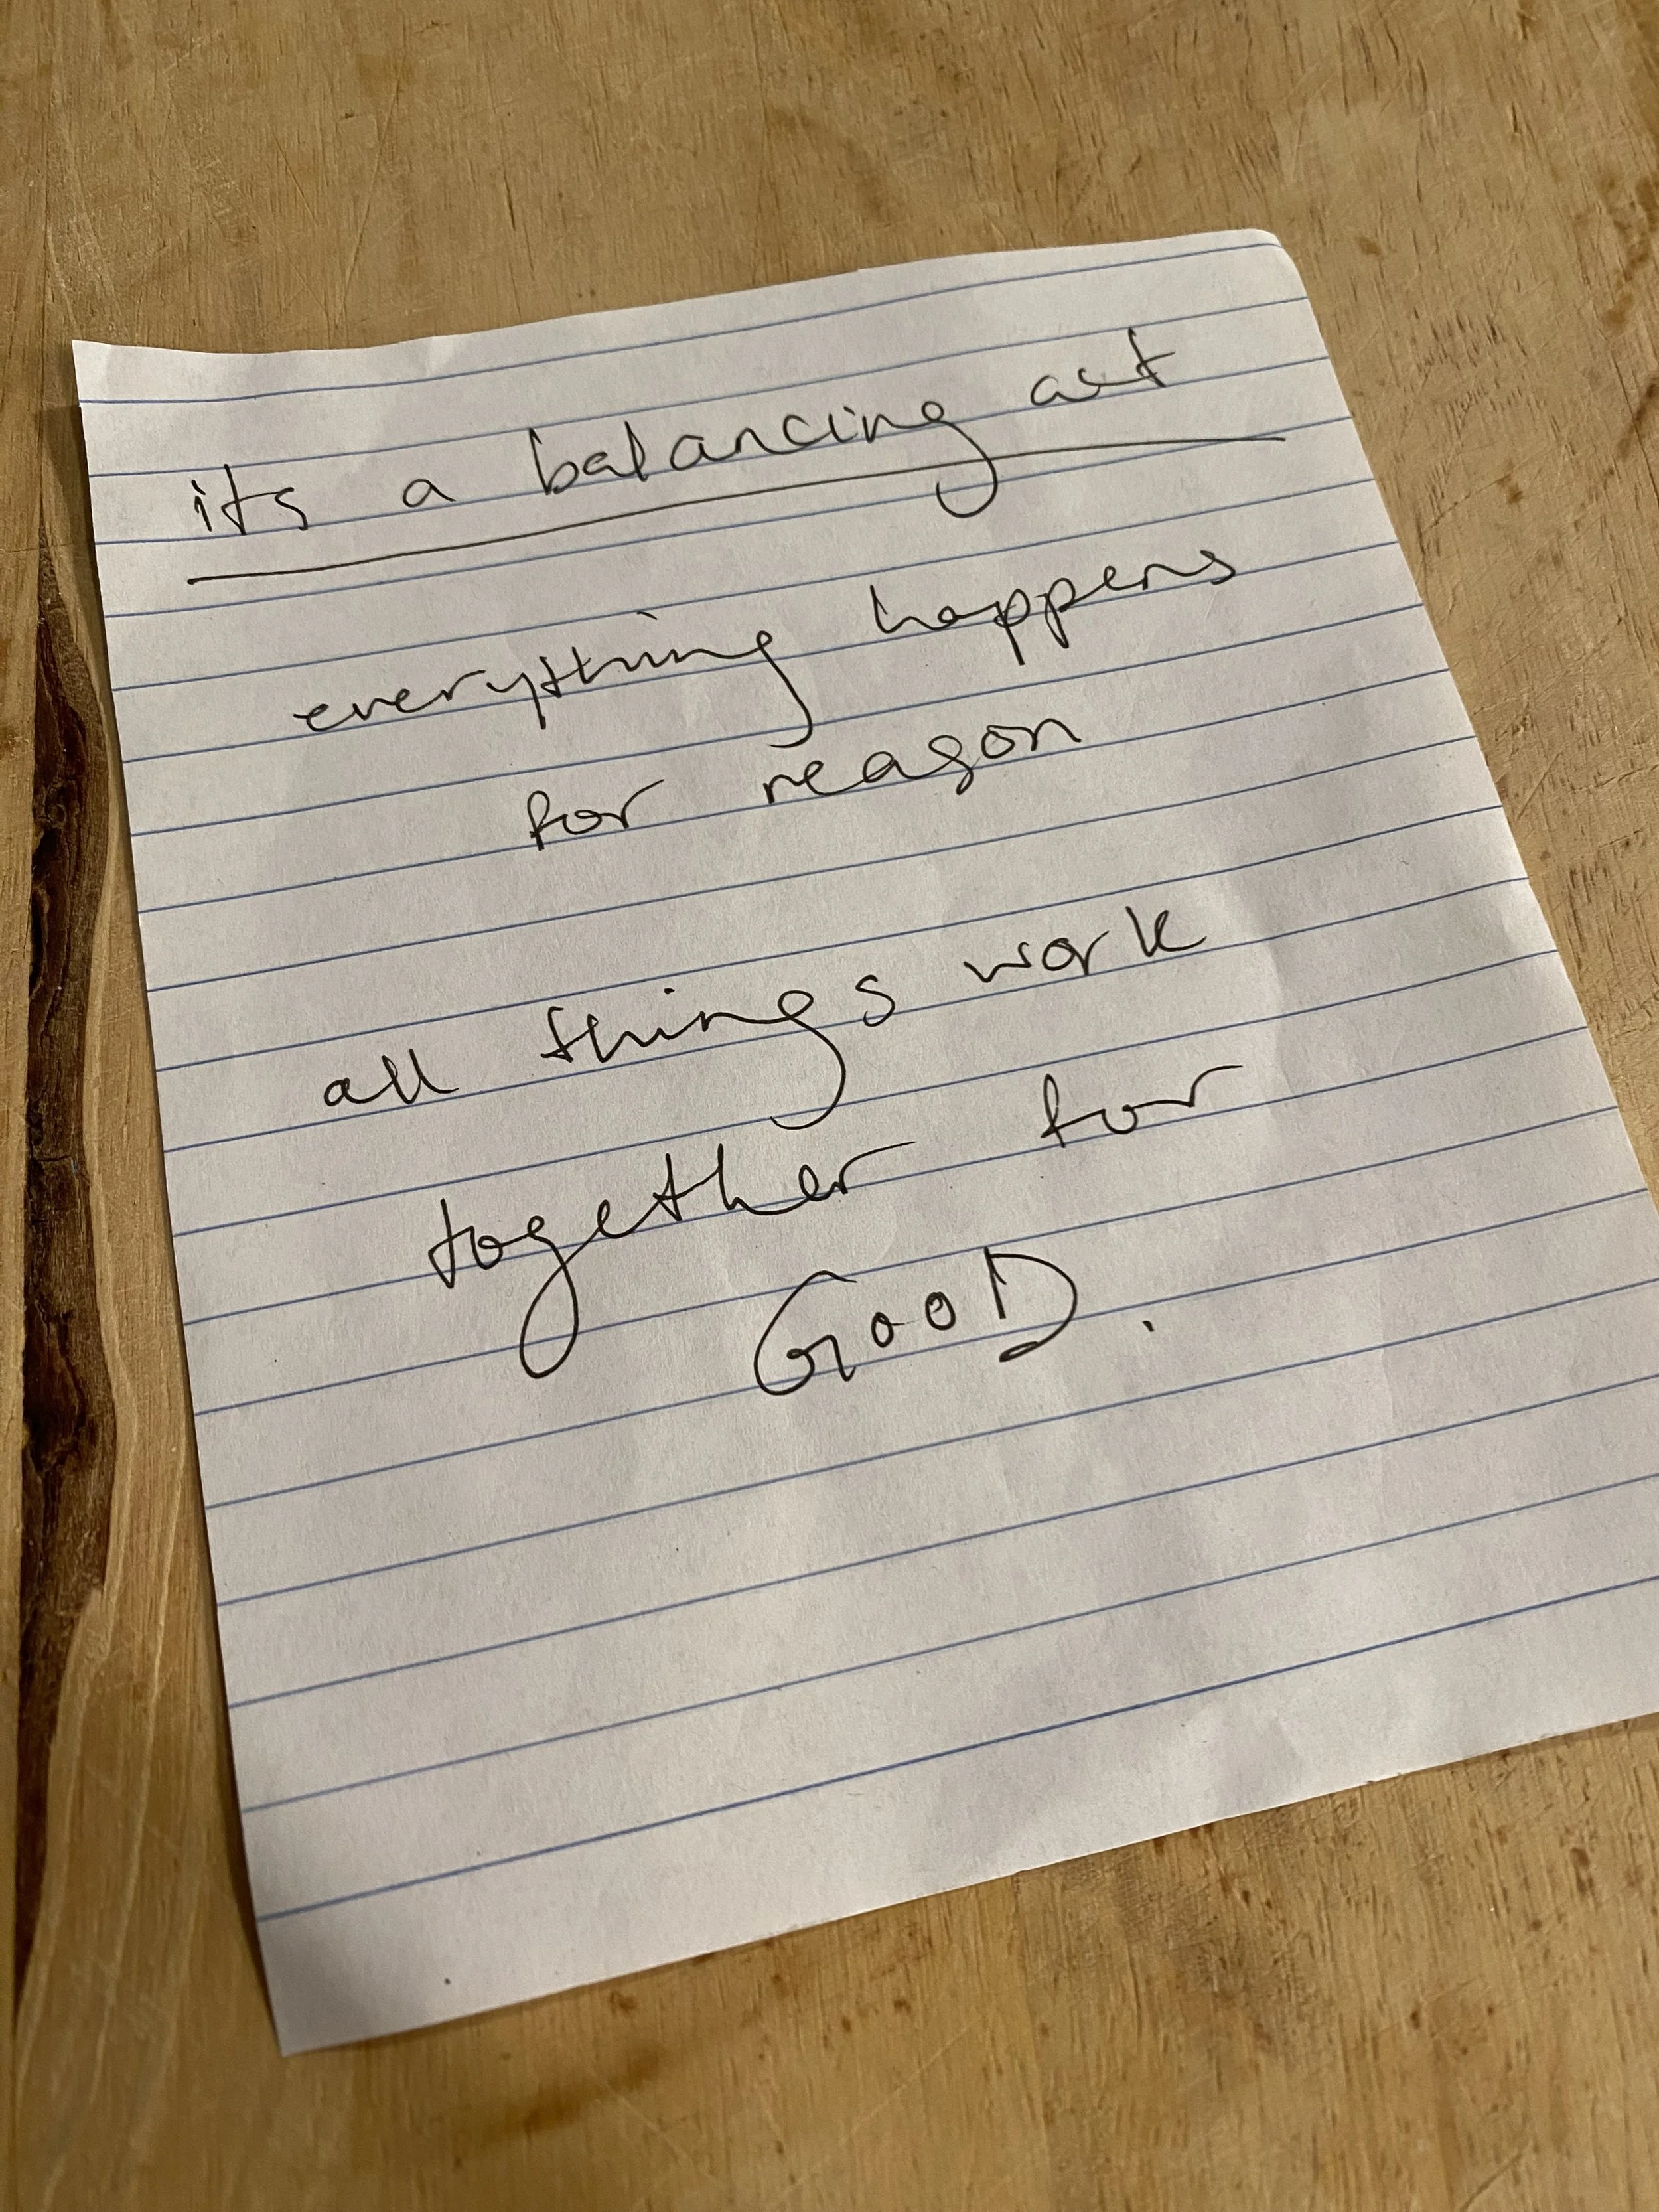 its a balancing act
everything happens
for reason
all things work
together for
GOOD.